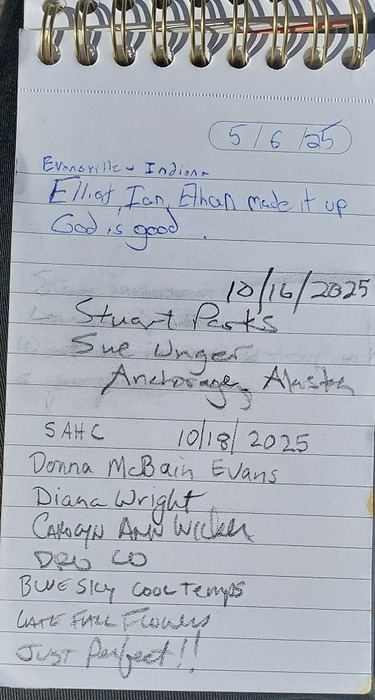 5/6/25
Evansville - Indiana
Elliot, Ian, Ethan made it up
God is good.
10/16/2025
Stuart Parks
Sue Unger
Anchorage, Alaska
SAHC 10/18/2025
Donna McBain Evans
Diana Wright
CAROLYN ANN Wicker
CO
BLUE SKY COOL TEMPS
LATE FALL FLOWERS
JUST Perfect!!